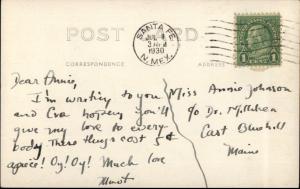 POST CARD
SANTA FE.
1930
N. MEX.
CORRESPONDENCE
ADDRESS
1
Dear Annie,
I'm writing to you
and Eva hoping you'll
give my love to every
body. These things cost 5¢
apiece! Oy! Oy! Much love
Miss Annie Johnson
c/o Dr. Milliken
East Bluehill
Maine